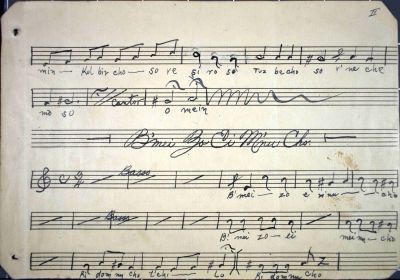 II
min - Kol bir cho - so re si ro so Tuz be cho so r'ne che
mo so Cantor O mein
B'nei Bo Ei M'nu Cho.
Basso B'nei - zo e m'nu - cho
Basso B'nei zo - ei mnu - cho
Ri dom nu cho t'chi - Lo Ri dom nu cho